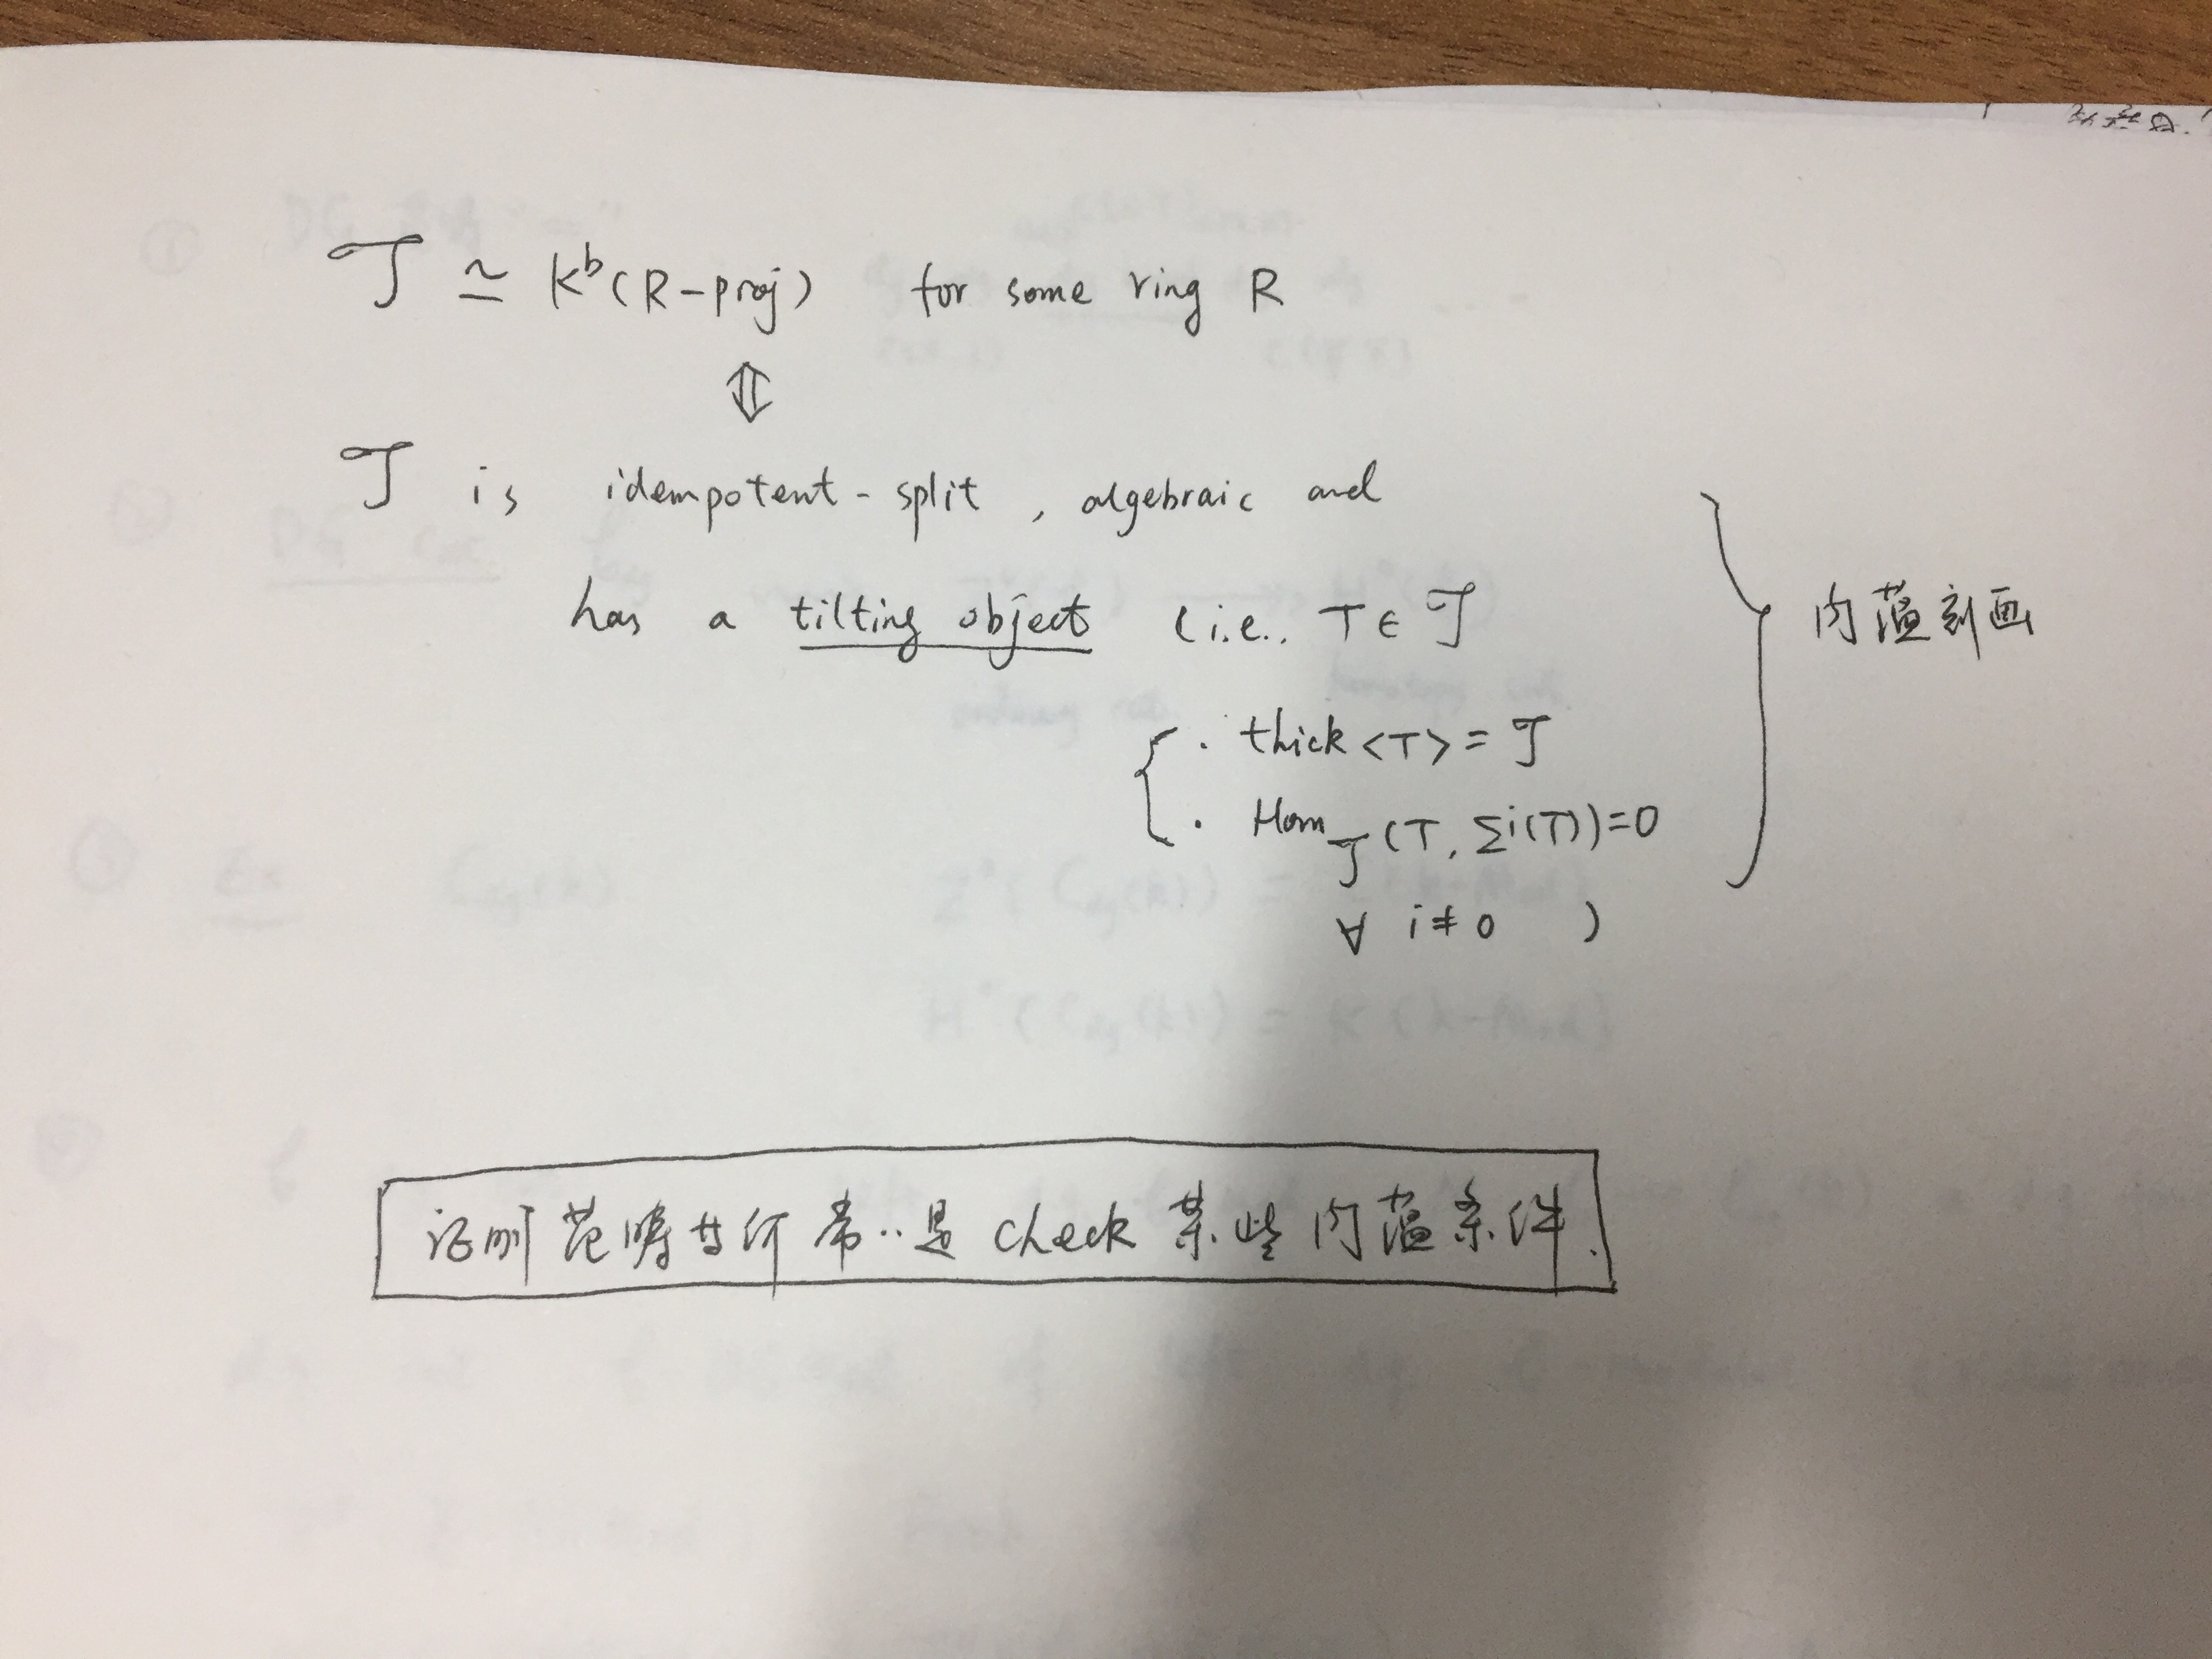 𝒯 ≃ K^b(R-proj) for some ring R
⇕
𝒯 is idempotent-split, algebraic and
has a tilting object (i.e., T ∈ 𝒯
· thick<T> = 𝒯
· Hom_𝒯(T, Σi(T))=0
∀ i≠0 )
内蕴刻画
证明范畴等价常..是 check 某些内蕴条件.